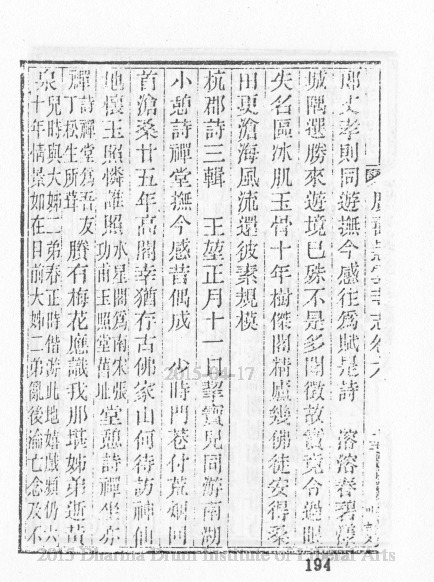 郎丈孝則同遊撫今感往爲賦是詩 溶溶春碧
城隅選勝來遊境已殊不是多聞徵故實竟令過眼
失名區冰肌玉骨十年樹傑閣精廬幾佛徒安得桑
田更滄海風流還彼素規模
杭郡詩三輯 王堃正月十一日挈寶兒同游南湖
小憩詩禪堂撫今感昔偶成 少時門巷付荒烟回
首滄桑廿五年高閣幸猶存古佛家山何待訪神仙
地懷玉照憐誰照水星閣爲南宋張功甫玉照堂舊址堂憩詩禪坐亦
禪詩禪堂爲吾友丁松生所葺賸有梅花應識我那堪姊弟逝黃
泉兒時與大姊二弟春正時偕游此地嬉戲頻仍六十年情景如在目前大姊二弟亂後淪亡念及不
2015-04-17
2015 Dharma Drum Institute of Liberal Arts
194